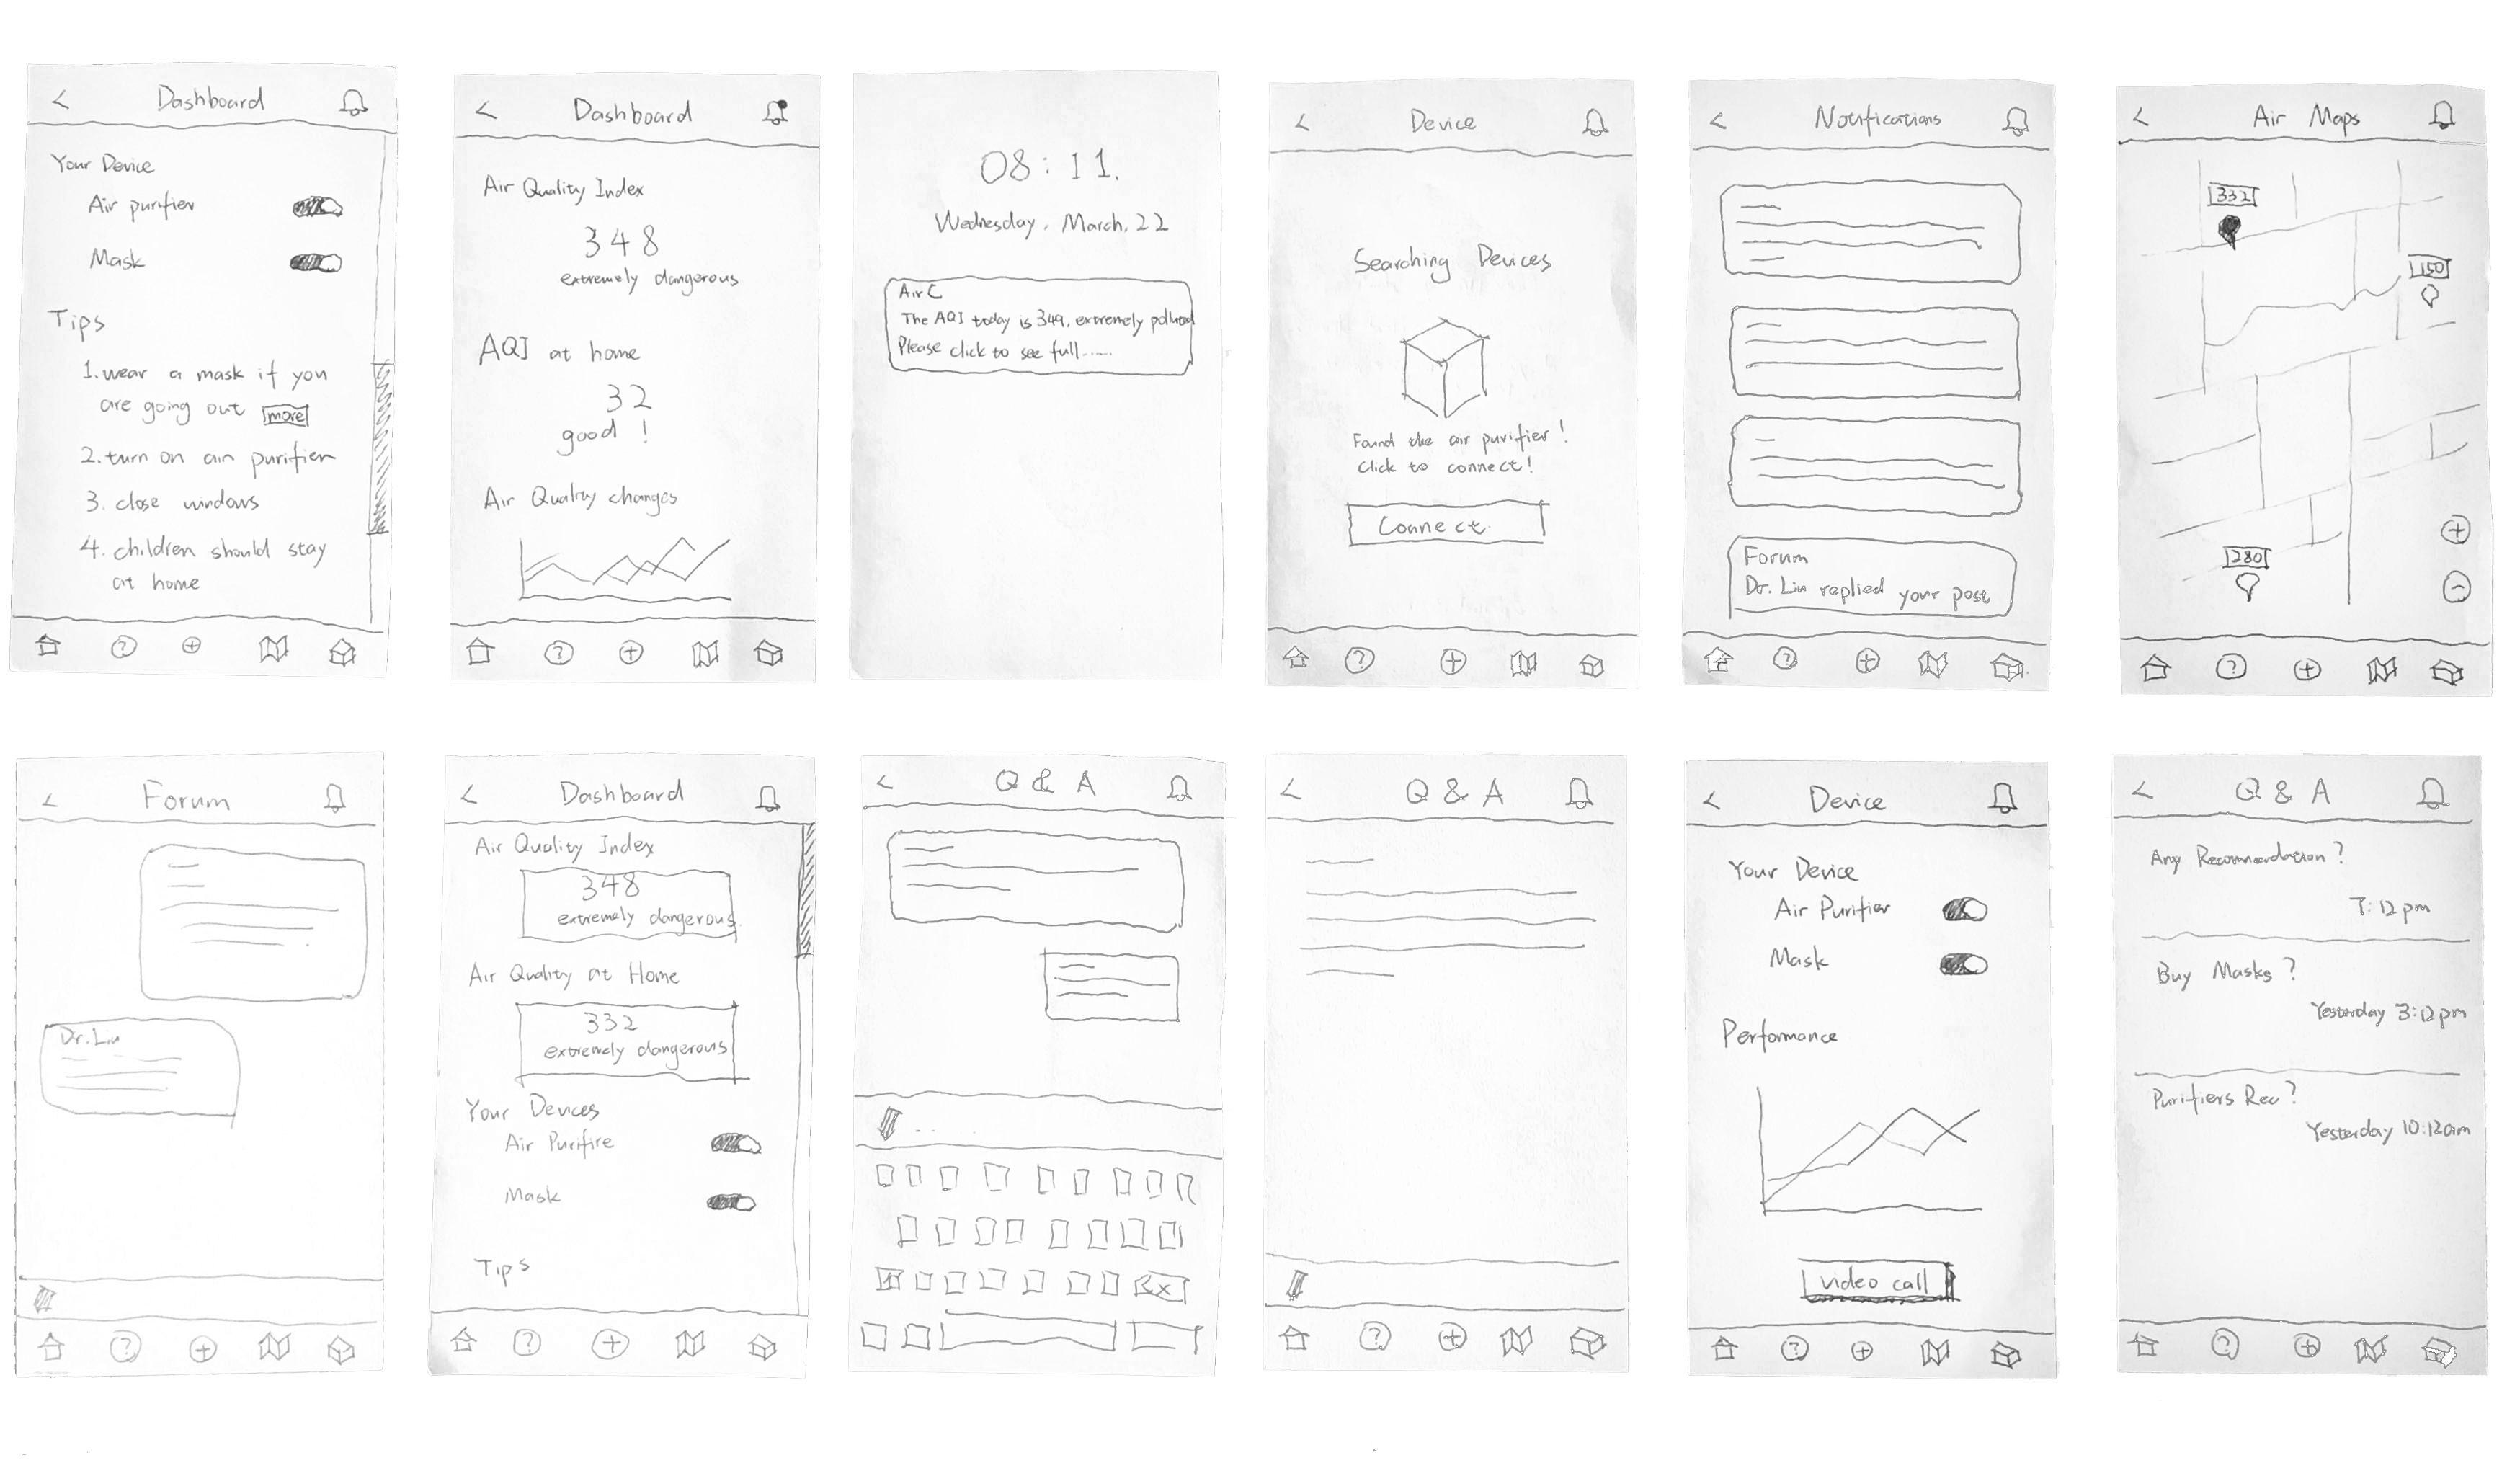 Dashboard
Your Device
Air purifier
Mask
Tips
1. wear a mask if you
are going out more
2. turn on air purifier
3. close windows
4. children should stay
at home
Dashboard
Air Quality Index
348
extremely dangerous
AQI at home
32
good !
Air Quality changes
08:11.
Wednesday, March, 22
Air C
The AQI today is 349, extremely polluted
Please click to see full......
Device
Searching Devices
Found the air purifier !
Click to connect !
Connect
Notifications
Forum
Dr. Liu replied your post
Air Maps
332
150
280
Forum
Dr. Liu
Dashboard
Air Quality Index
348
extremely dangerous
Air Quality at Home
332
extremely dangerous
Your Devices
Air Purifire
Mask
Tips
Q & A
Q & A
Device
Your Device
Air Purifier
Mask
Performance
video call
Q & A
Any Recommendation ?
7:12 pm
Buy Masks ?
Yesterday 3:12pm
Purifiers Rec ?
Yesterday 10:12am